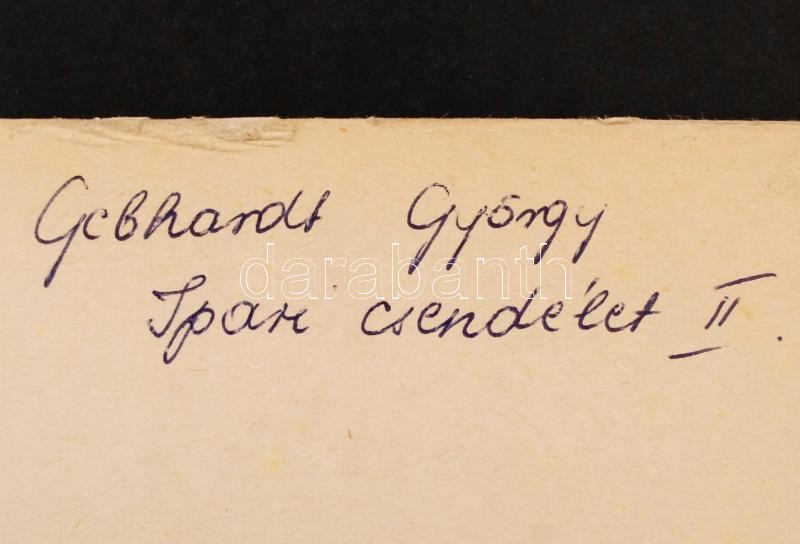 Gebhardt György
darabanth
Ipari csendélet II.